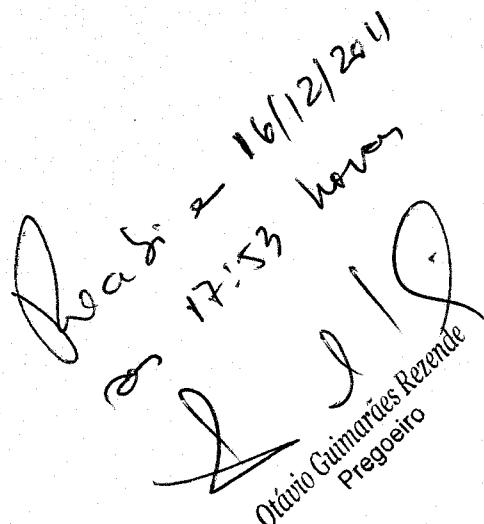 Recebi em 16/12/2011
as 17:53 horas
Otávio Guimarães Rezende
Pregoeiro